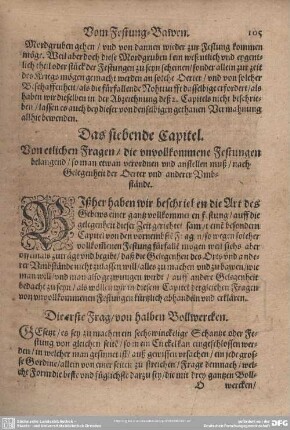 Vom Festung-Bawen. 105
Mordgruben gehen / vnd von dannen wieder zur Festung kommen
mög. Weil aber doch diese Mordgruben kein wesentlich vnd eigent-
lich theil oder stück der Festungen zu seyn scheinen / sonder allein zur zeit
des Kriegs mögen gemacht werden an solche Oerter / vnd von solcher
Beschaffenheit / als die fürfallende Nohturfft dasselbig erfordert / als
haben wir dieselben in der Abzeichnung deß 2. Capitels nicht beschrie-
ben / lassen es auch bey dieser von denselbigen gethanen Vermahnung
allhie bewenden.
Das siebende Capitel.
Von etlichen Fragen / die vnvollkommene Festungen
belangend / so man etwan verordnen vnd anstellen muß / nach
Gelegenheit der Oerter vnd anderer Vmb-
stände.
Bißher haben wir beschrieben die Art des
Gebews einer gantz vollkommenen Festung / auff die
gelegenheit dieser Zeit gerichtet
Capitel von den vornembsten Fragen
vollkommenen Festung fürfallen mögen weil sichs aber
offtmals zuträgt vnd begibt / daß die Gelegenheit des Orts vnd ande-
rer Vmbstände nicht zulassen will / alles zu machen vnd zu bawen, wie
man will / vnd man also gezwungen wird / auff andere Gelegenheit
bedacht zu seyn / als wollen wir in diesem Capitel dergleichen Fragen
von vnvollkommenen Festungen kürtzlich abhandeln vnd erklären.
Die erste Frag / von halben Bollwercken.
Gesetzt / es sey zu machen ein sechswinckelige Schantz oder Fe-
stung von gleichen seiten / so in ein Circkel kan eingeschlossen wer-
den / in welcher man gesinnet ist / auß gewissen vrsachen / ein jede gros-
se Gordine / allein von einer seiten zu streichen / Fragt demnach / wel-
che Form die beste vnd füglichste darzu sey / die mit drey gantzen Boll-
O wercken /